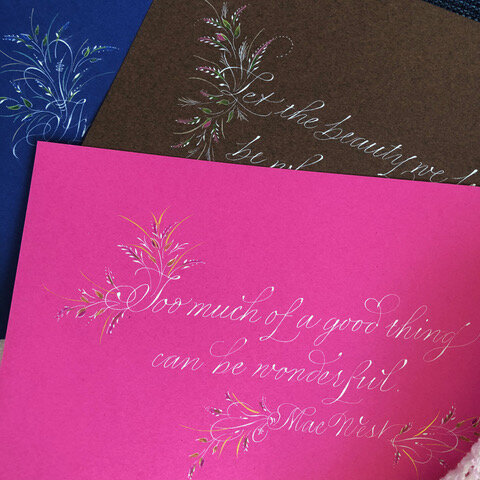 Let the beauty we
be
Too much of a good thing
can be wonderful.
Mae West